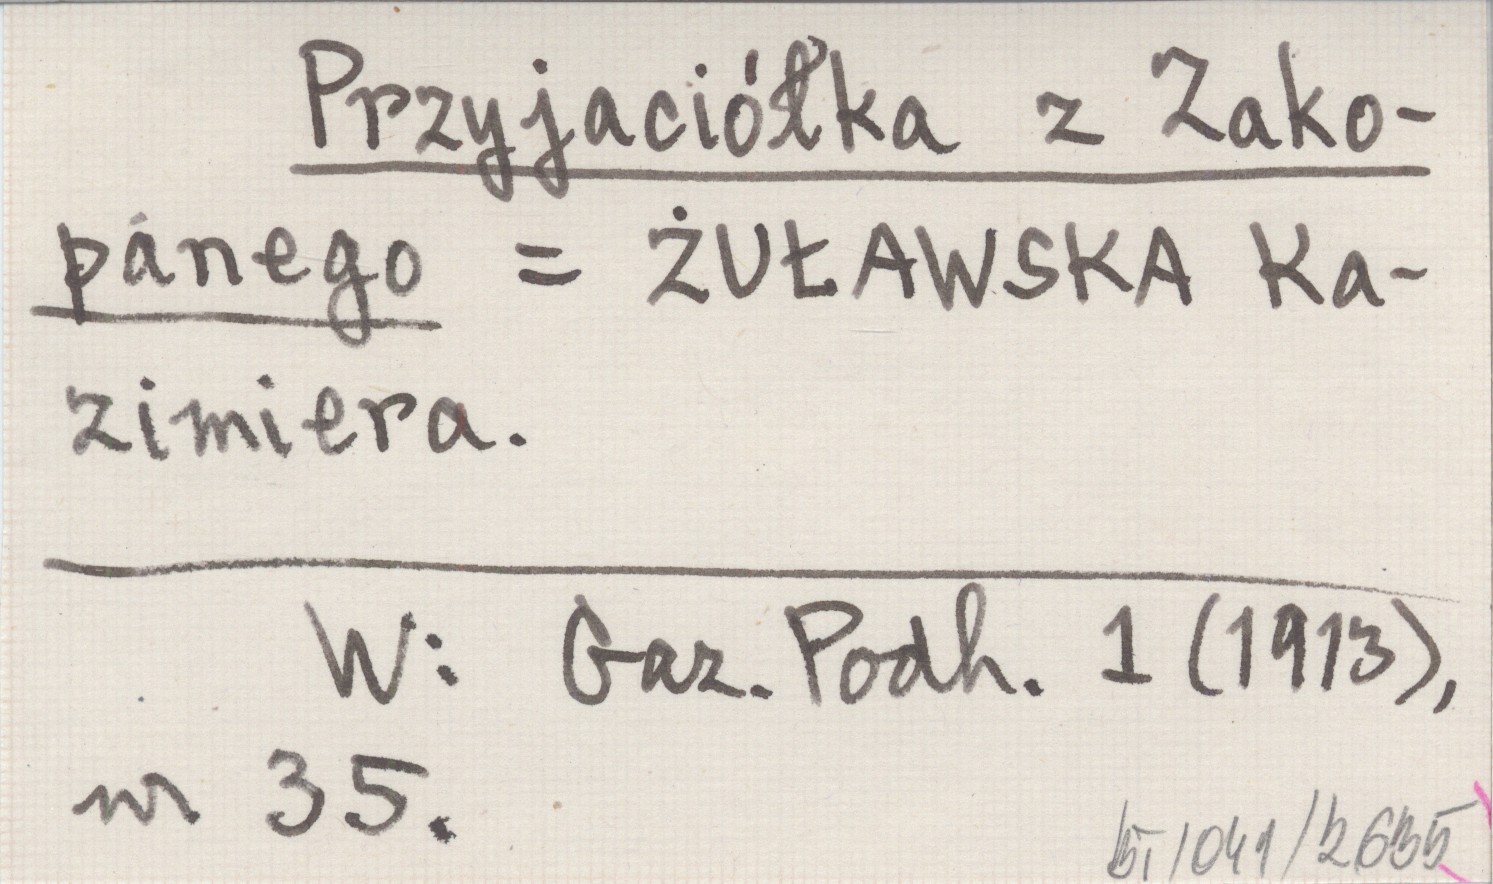 Przyjaciółka z Zako-
pánego = ŻUŁAWSKA Ka-
zimiera.
W: Gaz. Podh. 1 (1913),
nr 35.
/041/2635